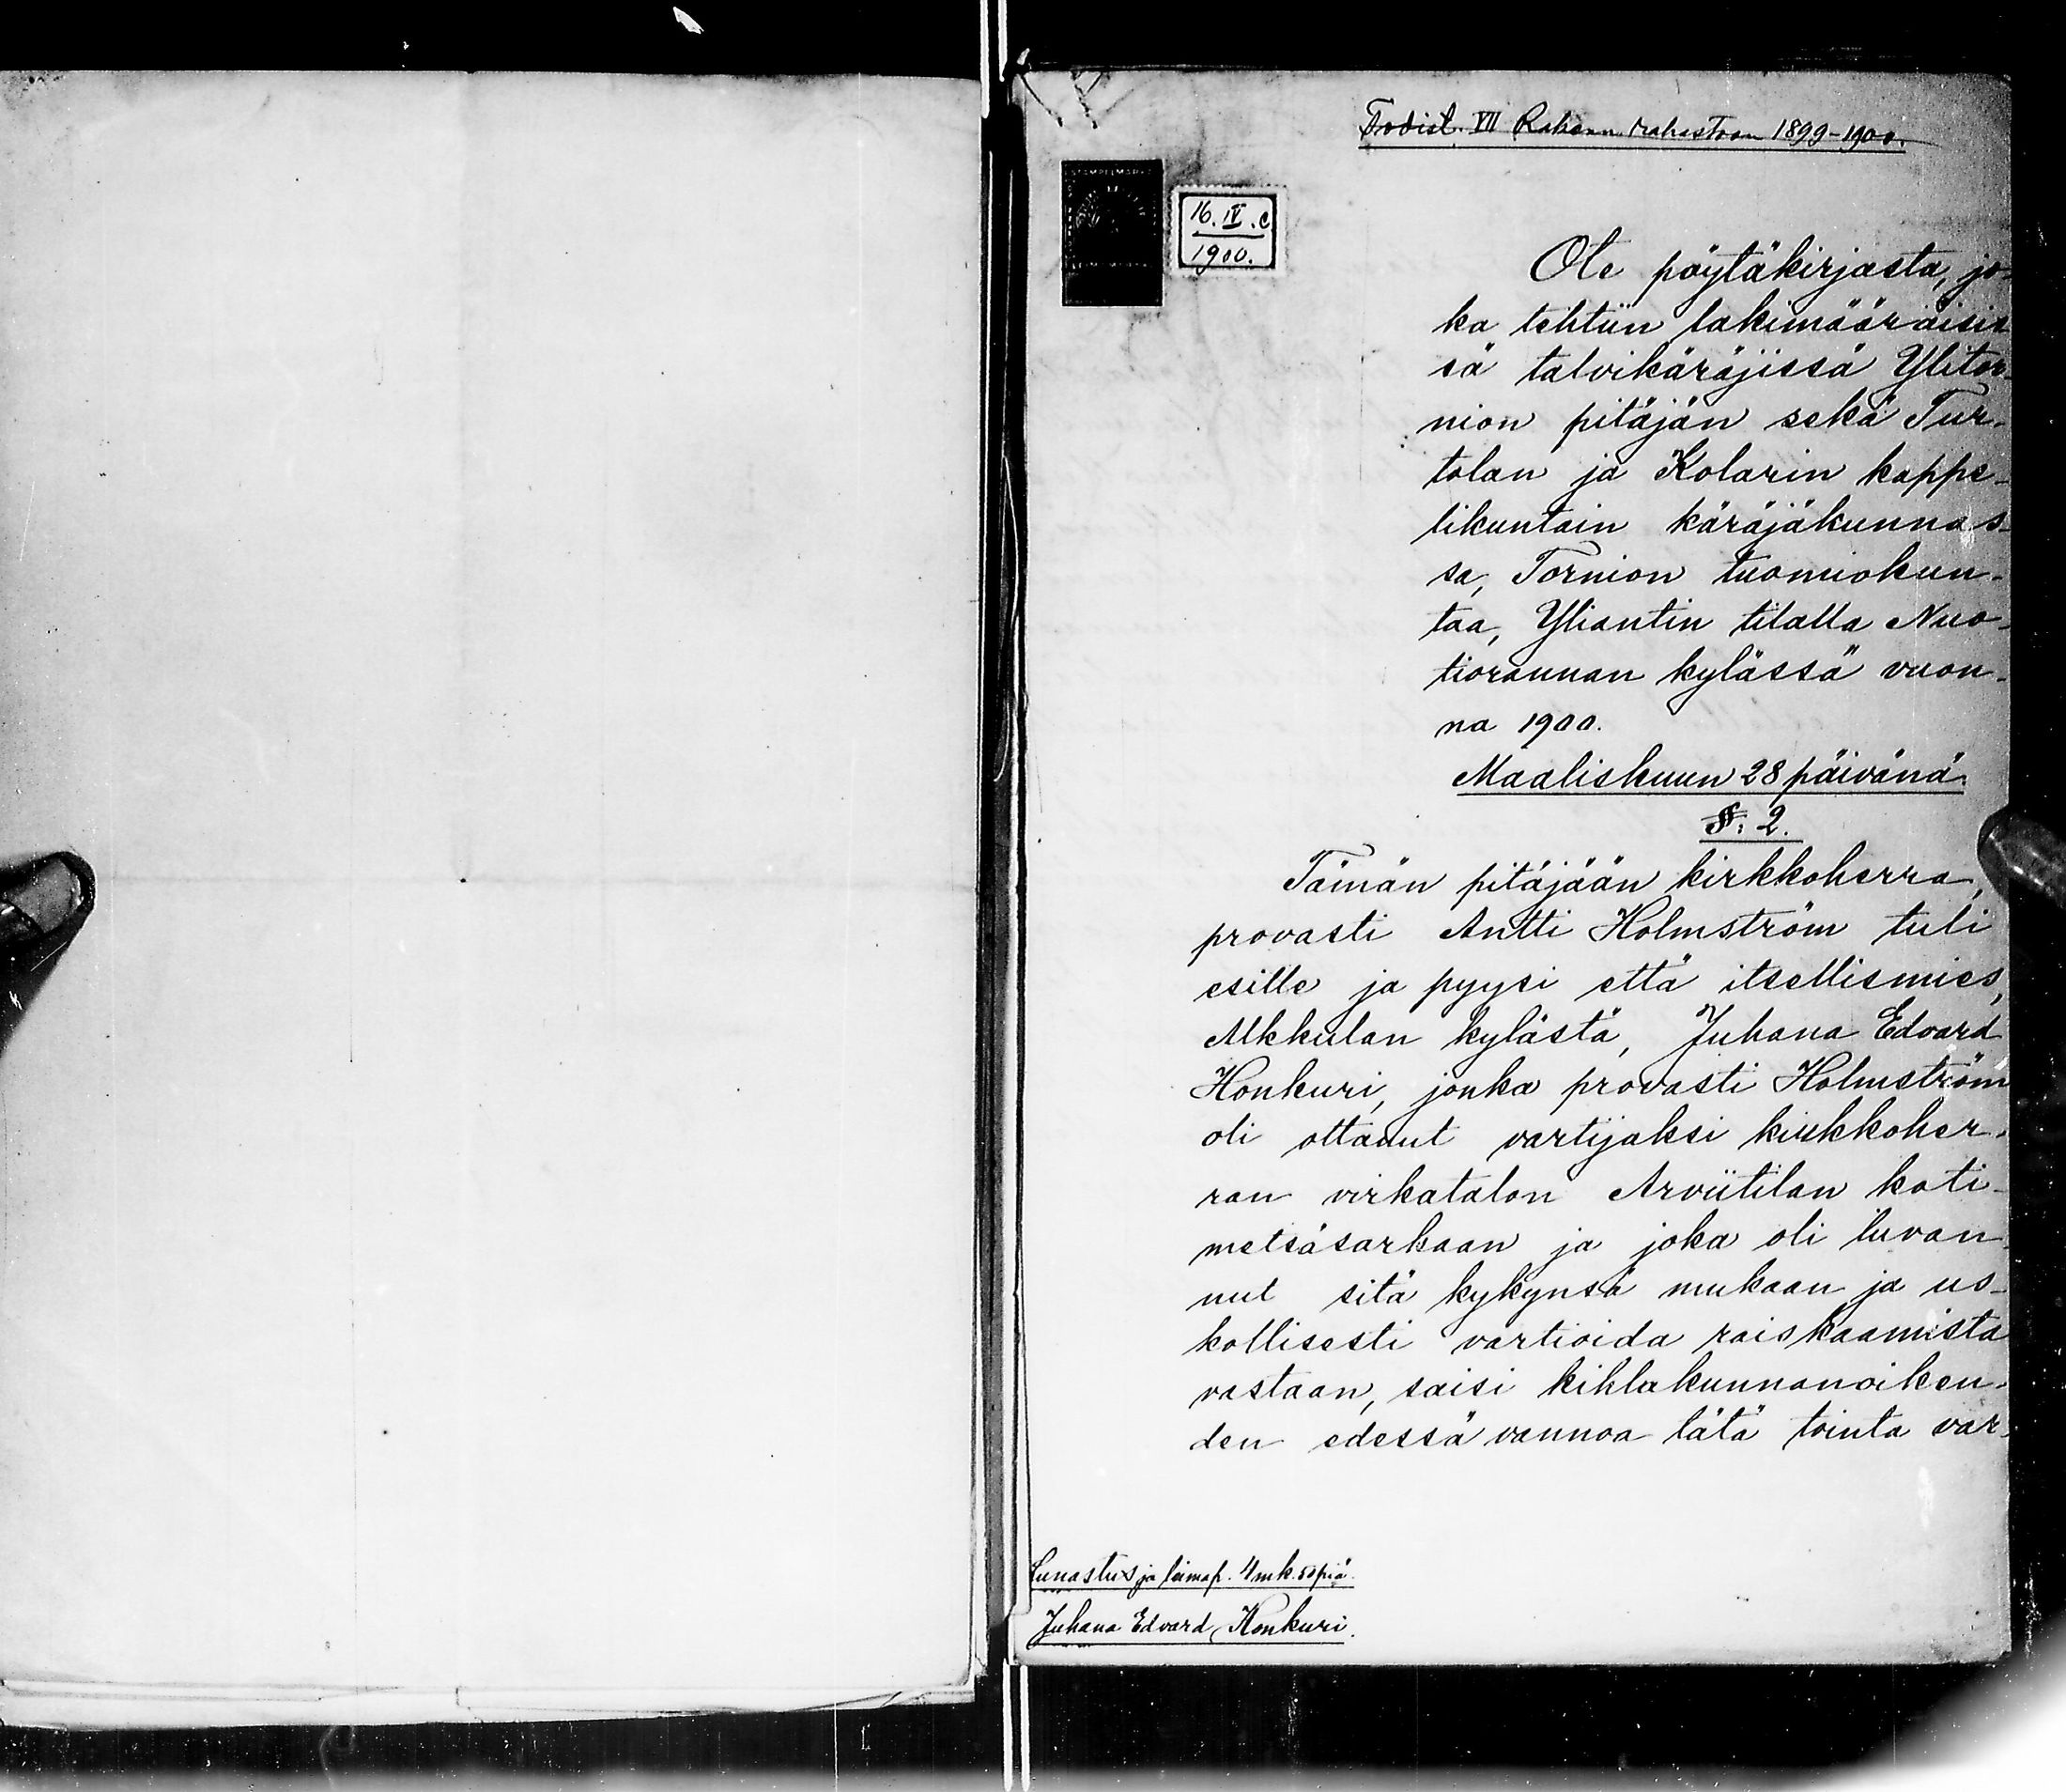 Todist. VII Rahaan rahastoon 1899-1900.
STÄMPELMÄRKE
16. IV. c
1900.
Ote pöytäkirjasta, jo-
ka tehtiin lakimääräisis
sä talvikäräjissä Ylitor-
nion pitäjän sekä Tur-
tolan ja Kolarin kappe-
likuntain käräjäkunnas-
sa, Tornion tuomiokun-
taa, Yliantin tilalla Nuo-
tiorannan kylässä vuon-
na 1900.
Maaliskuun 28 päivänä.
§: 2.
Tämän pitäjään kirkkoherra,
provasti Antti Holmström tuli
esille ja pyysi että itsellismies,
Alkkulan kylästä, Juhana Edvard
Honkuri, jonka provasti Holmström
oli ottanut vartijaksi kirkkoher-
ran virkatalon Arviitilan koti-
metsäsarkaan ja joka oli luvan-
nut sitä kykynsä mukaan ja us-
kollisesti vartioida raiskaamista
vastaan, saisi kihlakunnanoikeu-
den edessä vannoa tätä tointa var-
Lunastus ja leimap. 4 mk. 50 piä.
Juhana Edvard Honkuri.